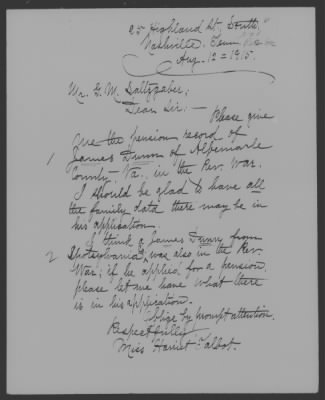 25 Highland St. South,
Nashville, Tenn.
Aug. 12 = 1915.
Mr. G. M. Saltzgaber;
Dear Sir:—
Please give
me the pension record of
1 James Dunn of Albemarle
County, Va., in the Rev. War.
I should be glad to have all
the family data there may be in
his application.
I think a James Dunn from
2 Spotsylvania, was also in the Rev.
War; if he applied for a pension,
please let me have what there
is in his application.
Oblige by prompt attention.
Respectfully
Miss Harriet Talbot.